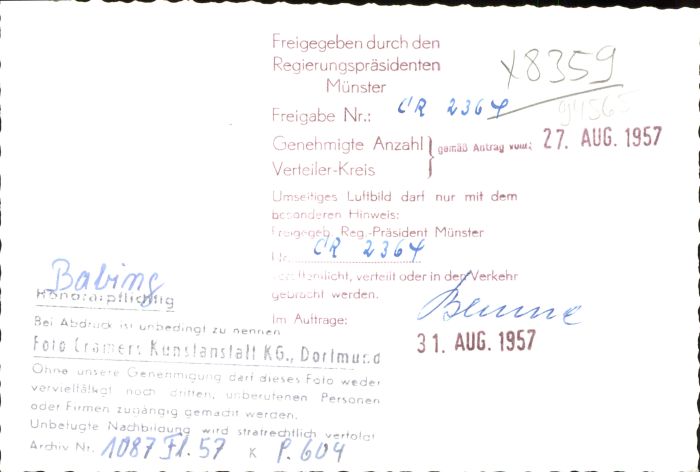 Freigegeben durch den
Regierungspräsidenten
Münster
Freigabe Nr.: CR 2364
x8359
94565
Genehmigte Anzahl
Verteiler-Kreis
gemäß Antrag vom: 27. AUG. 1957
Umseitiges Luftbild darf nur mit dem
besonderen Hinweis:
Freigegeb. Reg.-Präsident Münster
Nr. CR 2364
veröffentlicht, verteilt oder in den Verkehr
gebracht werden.
Im Auftrage:
31. AUG. 1957
Babing
Honorarpflichtig
Bei Abdruck ist unbedingt zu nennen
Foto Cramers Kunstanstalt KG., Dortmund
Ohne unsere Genehmigung darf dieses Foto weder
vervielfältigt noch dritten, unberufenen Personen
oder Firmen zugängig gemacht werden.
Unbefugte Nachbildung wird strafrechtlich verfolgt
Archiv Nr. 1087 Fl. 57 K P. 604